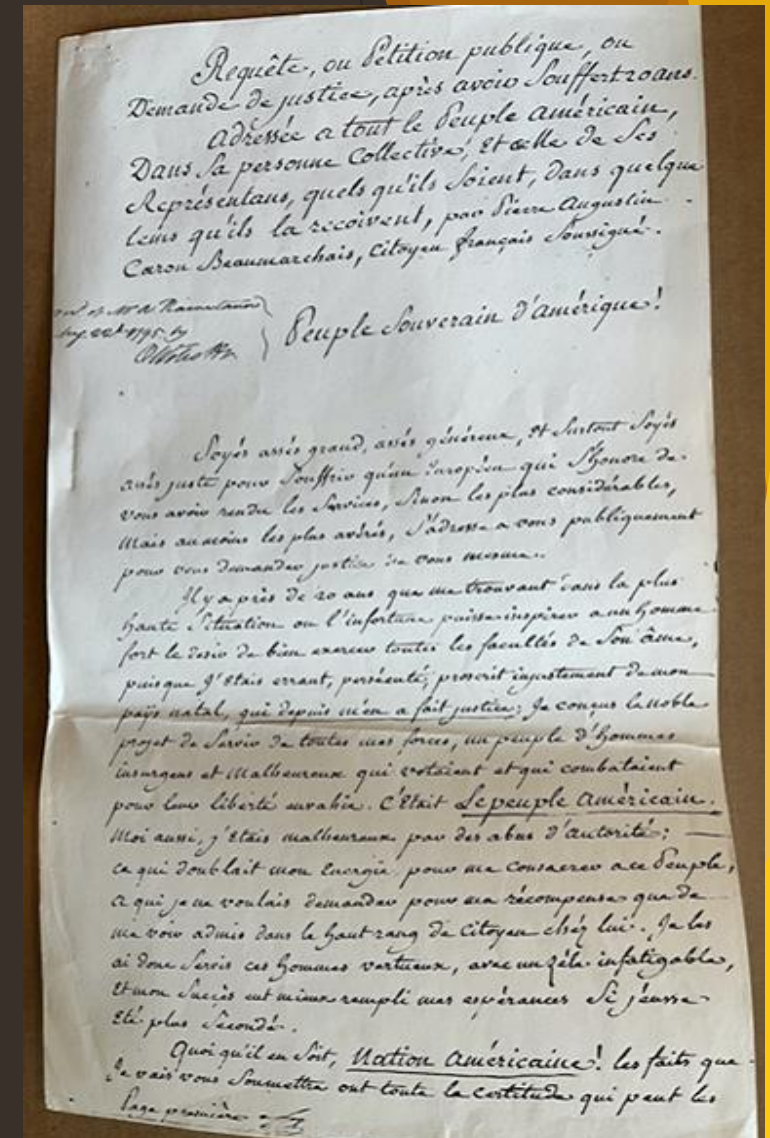 Requête, ou Pétition publique, ou
Demande de justice, après avoir Souffert 20 ans.
adréssée a tout le Peuple américain,
Dans Sa personne Collective, et celle de Ses
Représentans, quels qu'ils Soient, dans quelque
tems qu'ils la recoivent, par Pierre Augustin
Caron Beaumarchais, Citoyen français Soussigné.
of Mr de
22d 1795 by
Peuple Souverain d'amérique!
Soyés assés grand, assés généreux, et Surtout Soyés
assés juste pour Souffrir qu'un Européen qui S'honore de
vous avoir rendu les Services, Sinon les plus considérables,
mais au moins les plus avérés, S'adresse a vous publiquement
pour vous demander justice de vous mesme.
Il y a près de 20 ans que me trouvant dans la plus
haute Situation ou l'infortune puisse inspirer a un homme
fort le desir de bien exercer toutes les facultés de Son âme,
puisque j'étais errant, persécuté, proscrit injustement de mon
païs natal, qui depuis m'en a fait justice; Je conçus le noble
projet de Servir de toutes mes forces, un peuple d'hommes
insurgens et malheureux qui votaient et qui combataient
pour leur liberté envahie. C'Etait Le peuple Américain.
Moi aussi, j'étais malheureux par des abus d'autorité;
ce qui doublait mon Energie pour me consacrer a ce Peuple,
a qui je ne voulais demander pour ma récompense que de
me voir admis dans le haut rang de Citoyen chéz lui. Je les
ai donc Servis ces hommes vertueux, avec un zèle infatigable,
Et mon Succès eut mieux rempli mes espérances Si j'eusse
Eté plus Secondé.
Quoi qu'il en Soit, Nation américaine! les faits que
Je vais vous Soumettre ont toute la certitude qui peut les
Page première